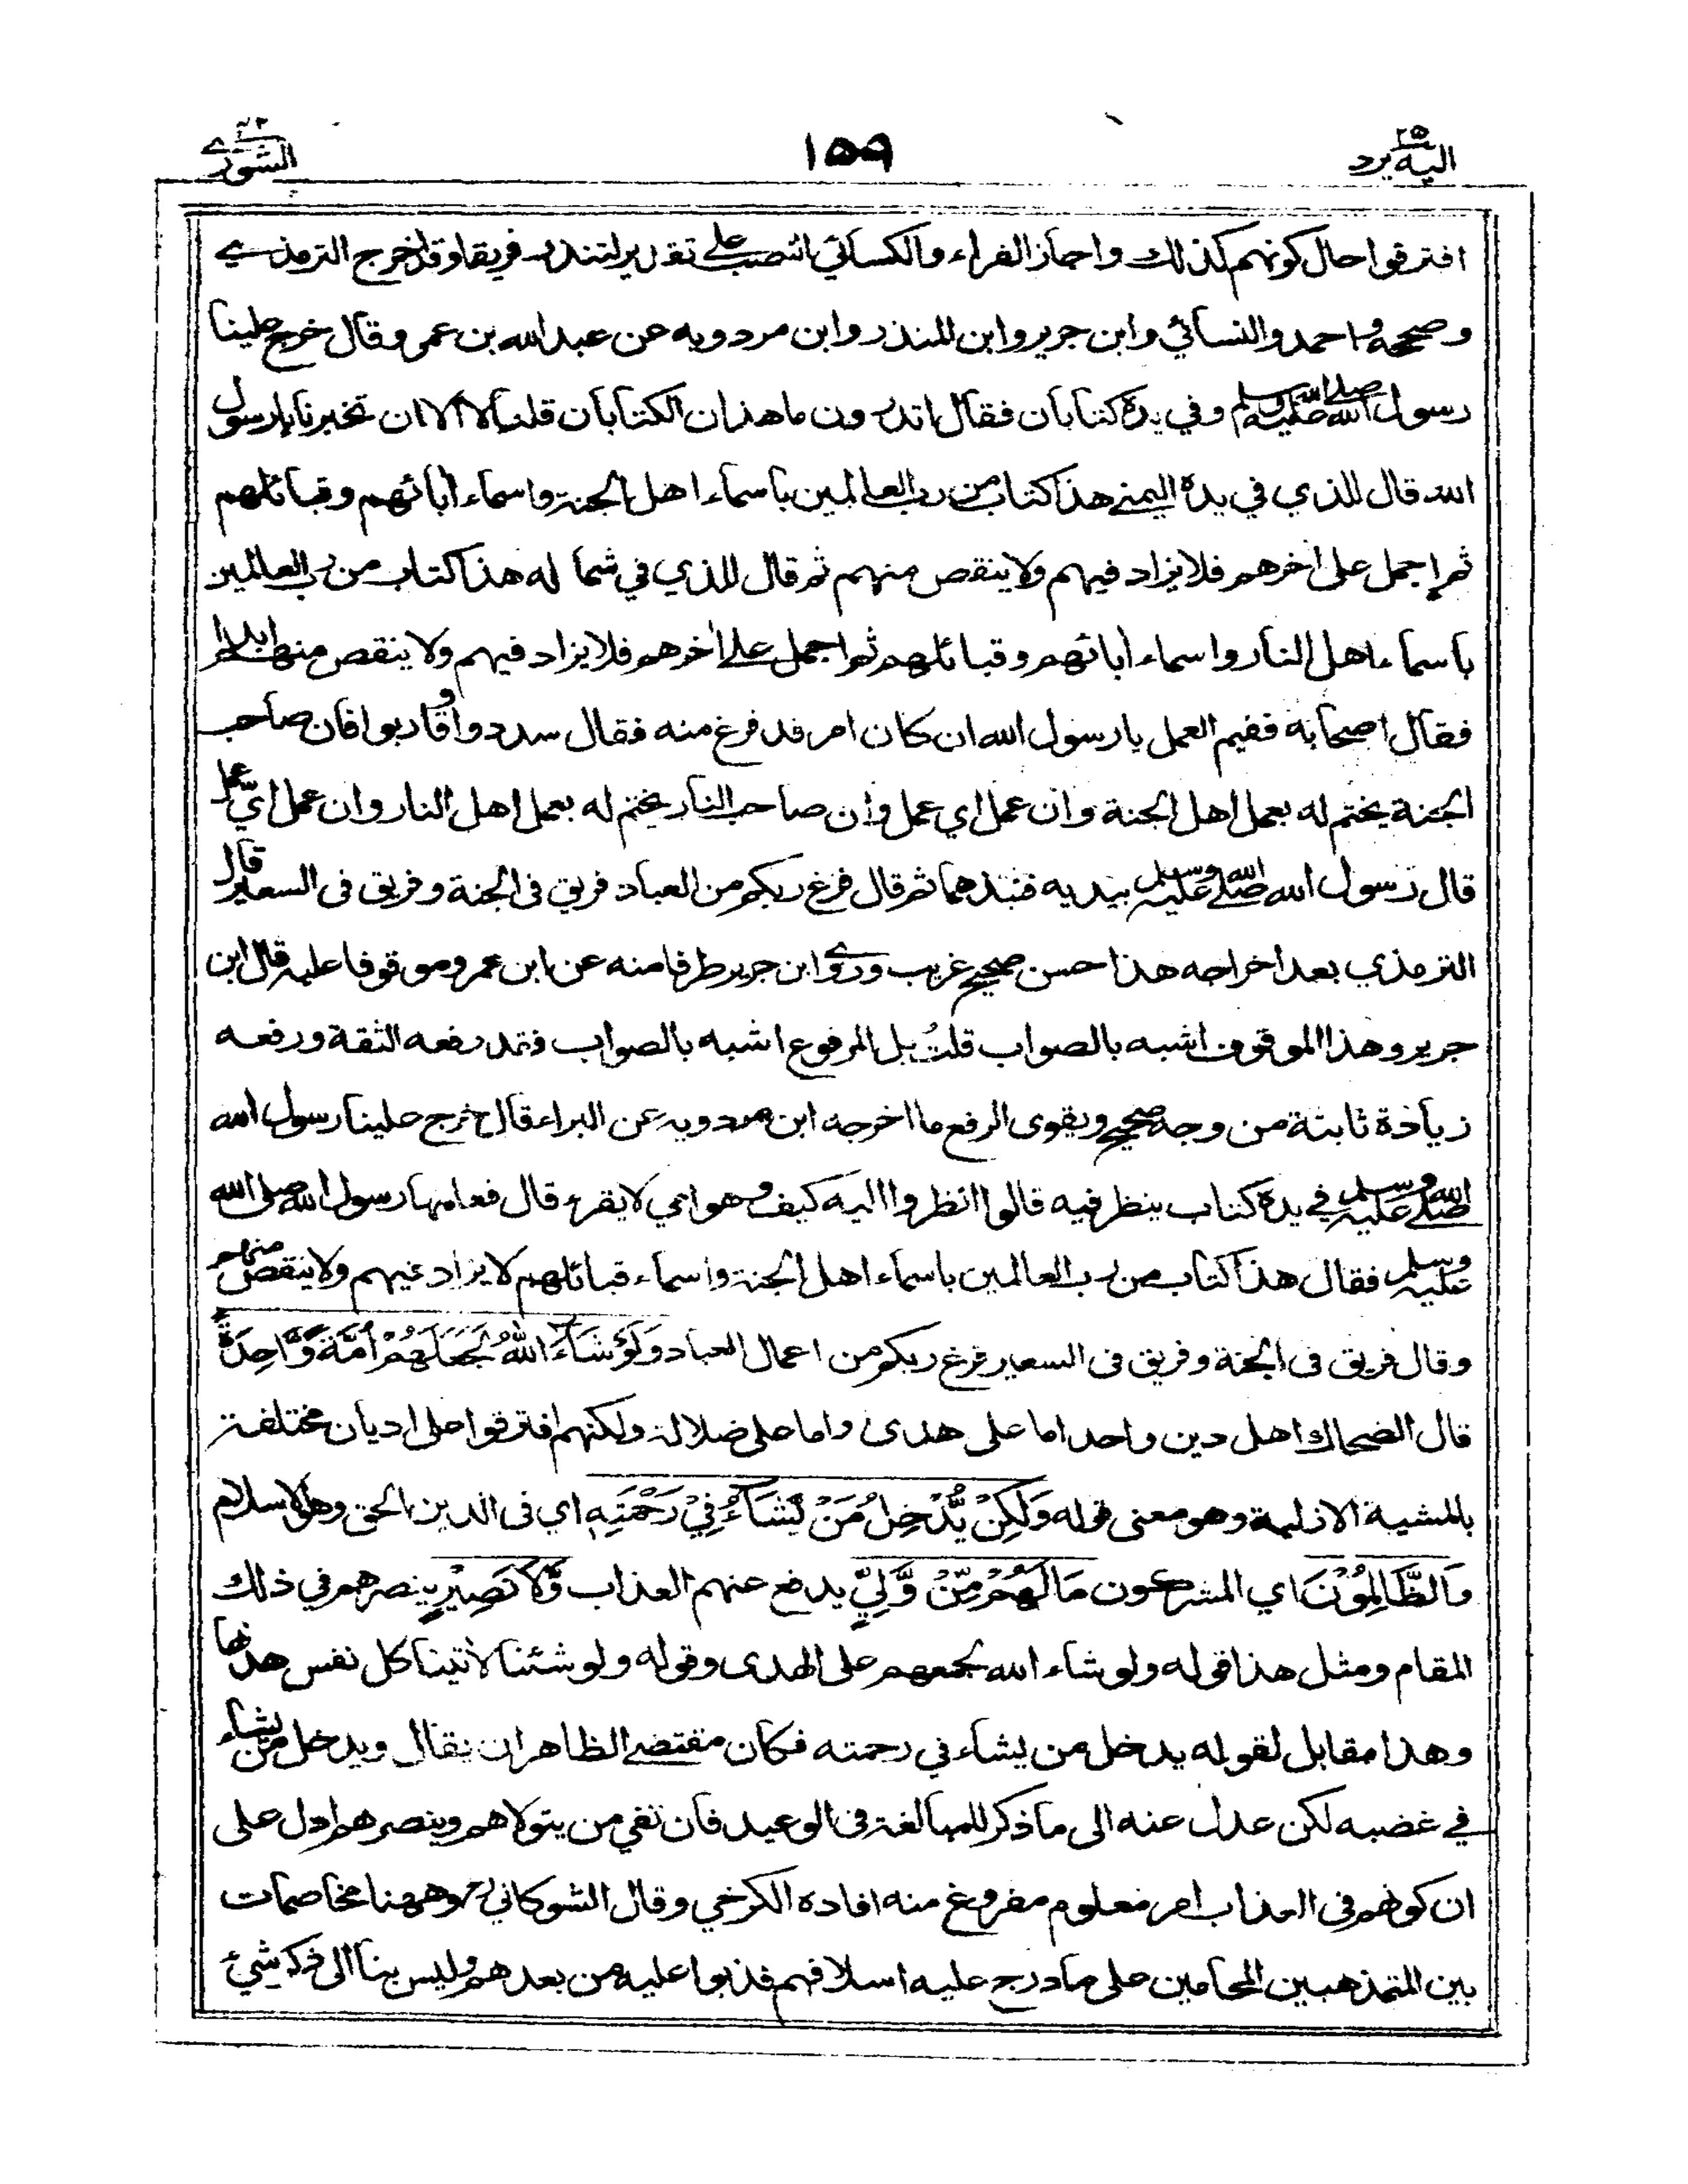 اليه يرد ٢٥
١٥٩
الشورى ٤٢
افترقوا حال كونهم كذلك واجاز الفراء والكسائي النصب على تقدير لتنذر فريقا وقد اخرج الترمذي
وصححه واحمد والنسائي وابن جرير وابن المنذر وابن مردويه عن عبد الله بن عمرو قال خرج علينا
رسول الله صلى الله عليه وسلم وفي يده كتابان فقال اتدرون ما هذان الكتابان قلنا لا الا ان تخبرنا يا رسول
الله قال للذي في يده اليمنى هذا كتاب من رب العالمين باسماء اهل الجنة واسماء أبائهم وقبائلهم
ثم اجمل على أخرهم فلا يزاد فيهم ولا ينقص منهم ثم قال للذي في شماله هذا كتاب من رب العالمين
باسماء اهل النار واسماء أبائهم وقبائلهم ثم اجمل على أخرهم فلا يزاد فيهم ولا ينقص منهم ابدا
فقال اصحابه ففيم العمل يا رسول الله ان كان امر قد فرغ منه فقال سددوا وقاربوا فان صاحب
الجنة يختم له بعمل اهل الجنة وان عمل اي عمل وان صاحب النار يختم له بعمل اهل النار وان عمل اي عمل
قال رسول الله صلى الله عليه وسلم بيديه فنبذهما ثم قال فرغ ربكم من العباد فريق فى الجنة وفريق فى السعير قال
الترمذي بعد اخراجه هذا حسن صحيح غريب وروى ابن جرير طرفا منه عن ابن عمرو موقوفا عليه قال ابن
جرير وهذا الموقوف اشبه بالصواب قلت بل المرفوع اشبه بالصواب فقد رفعه الثقة ورفعه
زيادة ثابتة من وجه صحيح ويقوى الرفع ما اخرجه ابن مردويه عن البراء قال خرج علينا رسول الله
صلى الله عليه وسلم في يده كتاب ينظر فيه قالوا انظروا اليه كيف وهو امي لا يقرء قال فعلمها رسول الله صلى الله
عليه وسلم فقال هذا كتاب من رب العالمين باسماء اهل الجنة واسماء قبائلهم لا يزاد فيهم ولا ينقص منهم
وقال فريق فى الجنة وفريق فى السعير فرغ ربكم من اعمال العباد وَلَوْ شَاءَ اللّٰهُ لَجَعَلَهُمْ أُمَّةً وَّاحِدَةً
قال الضحاك اهل دين واحد اما على هدى واما على ضلالة ولكنهم افترقوا على اديان مختلفة
بالمشية الازلية وهو معنى قوله وَلٰكِنْ يُّدْخِلُ مَنْ يَّشَاءُ فِيْ رَحْمَتِهِ اي فى الدين الحق وهو الاسلام
وَالظَّالِمُوْنَ اي المشركون مَا لَهُمْ مِّنْ وَّلِيٍّ يدفع عنهم العذاب وَّلَا نَصِيْرٍ ينصرهم في ذلك
المقام ومثل هذا قوله ولو شاء الله لجمعهم على الهدى وقوله ولو شئنا لأتينا كل نفس هداها
وهذا مقابل لقوله يدخل من يشاء في رحمته فكان مقتضى الظاهر ان يقال ويدخل من يشاء
في غضبه لكن عدل عنه الى ما ذكر للمبالغة فى الوعيد فان نفي من يتولاهم وينصرهم ادل على
ان كونهم فى العذاب امر معلوم مفروغ منه افاده الكرخي وقال الشوكاني رح وههنا مخاصمات
بين المتمذهبين المحامين على ما درج عليه اسلافهم فدبوا عليه من بعدهم وليس بنا الى ذكر شيئ